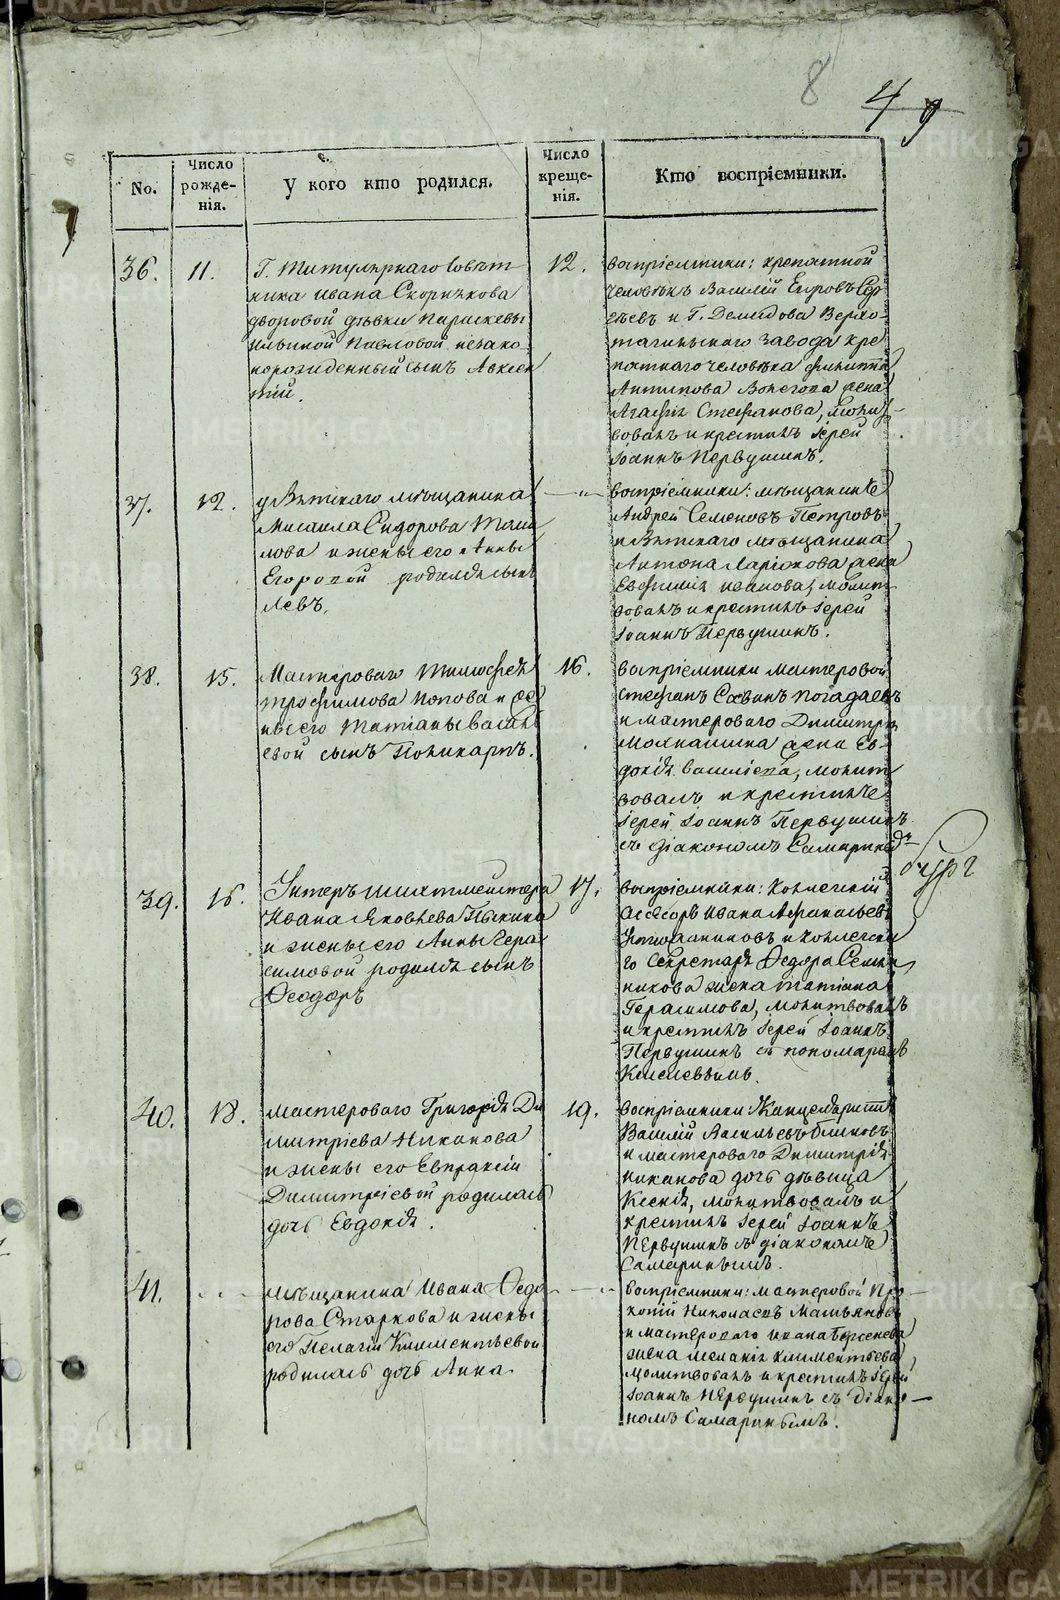 8
4 9
No.
Число рожде-
нія.
У кого кто родился.
Число креще-
нія.
Кто воспріемники.
36.
11.
Г. Титулярнаго Совѣт
ника Ивана Скорнякова
дворовой дѣвки Параскевы
Ильиной Павловой незако
норожденный сынъ Авксен
тій.
12.
воспріемники: крепостной
человѣкъ Василій Егоровъ Сер
гѣевъ и Г. Демидова Верхо-
тагильскаго завода кре
постнаго человѣка
Антипова жена
Агафія Стефанова, молит
вовалъ и крестилъ Іерей
Іоаннъ Первушинъ.
37.
12.
у Вятскаго мѣщанина
Михаила Сидорова
и жены его Анны
Егоровой родился сынъ
Левъ.
— „
воспріемники: мѣщанинъ
Андрей Семеновъ Петровъ
и Вятскаго мѣщанина
Антона Ларіонова жена
Евфимія Иванова, молит
вовалъ и крестилъ Іерей
Іоаннъ Первушинъ.
38.
15.
Мастероваго Тимофея
Трофимова Попова и же
ны его Татіаны Василь
евой сынъ Поликарпъ.
16.
воспріемники мастеровой
Стефанъ Савинъ Погадаевъ
и мастероваго Димитрія
жена Ев-
докія Василіева, молит
вовалъ и крестилъ
Іерей Іоаннъ Первушинъ
съ діакономъ
39.
16.
Унтеръ шихтмейстера
Ивана Яковлева
и жены его Анны Гера
симовой родился сынъ
Феодоръ
17.
воспріемники: Коллежскій
Асессоръ Иванъ Афанасьевъ
и Коллежска
го Секретаря Федора
жена Татіана
Герасимова, молитвовалъ
и крестилъ Іерей Іоаннъ
Первушинъ съ пономаремъ
Киселевымъ.
40.
18.
мастероваго Григорія Ди
митріева Никонова
и жены его Евпраксіи
Димитріевой родилась
дочь Евдокія.
19.
воспріемники: Канцеляристъ
Василій Васильевъ Блиновъ
и мастероваго Димитрія
Никонова дочь дѣвица
Ксенія, молитвовалъ и
крестилъ Іерей Іоаннъ
Первушинъ съ діакономъ
Самаринымъ.
41.
— „ —
мѣщанина Ивана Федо
рова Старкова и жены
его Пелагіи Климентьевой
родилась дочь Анна
— „
воспріемники: мастеровой Про
копій Николаевъ
и мастероваго Ивана
жена Меланія Климентьева,
молитвовалъ и крестилъ Іерей
Іоаннъ Первушинъ съ діако
номъ Самаринымъ.
METRIKI.GASO-URAL.RU